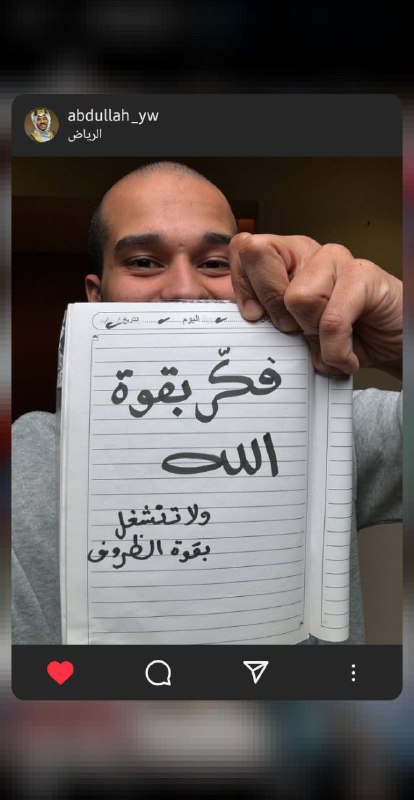 abdullah_yw
الرياض
اليوم التاريخ
فكّر بقوة
الله
ولا تنشغل
بقوة الظروف